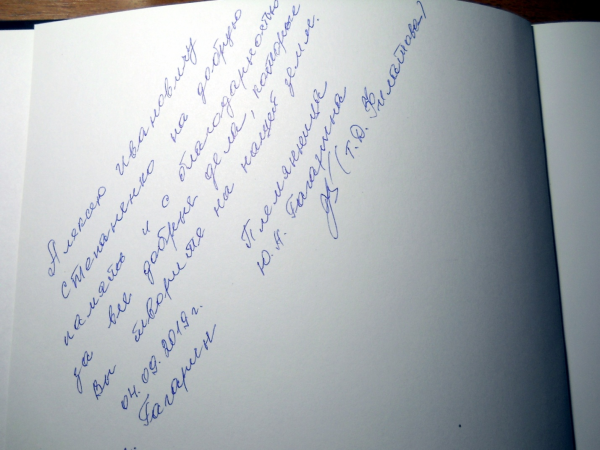 Алексею Ивановичу
Степаненко на добрую
память и с благодарностью
за все добрые дела, которые
Вы творите на нашей земле.
Племянница
Ю. А. Гагарина
(Т. Д. Филатова)
04.09.2019г.
Гагарин